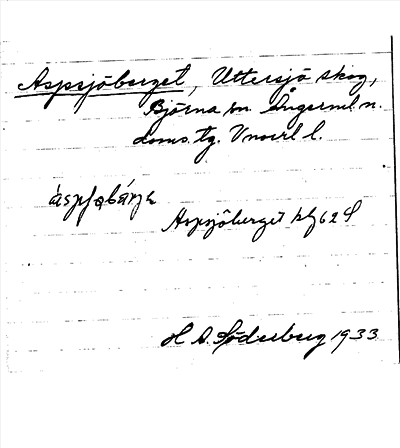 Aspsjöberget, Uttersjö skog,
Björna sn Ångerml. n.
doms. tg. Vnorrl l.
Aspsjöberget kf 62 S
H S. Söderberg 1933